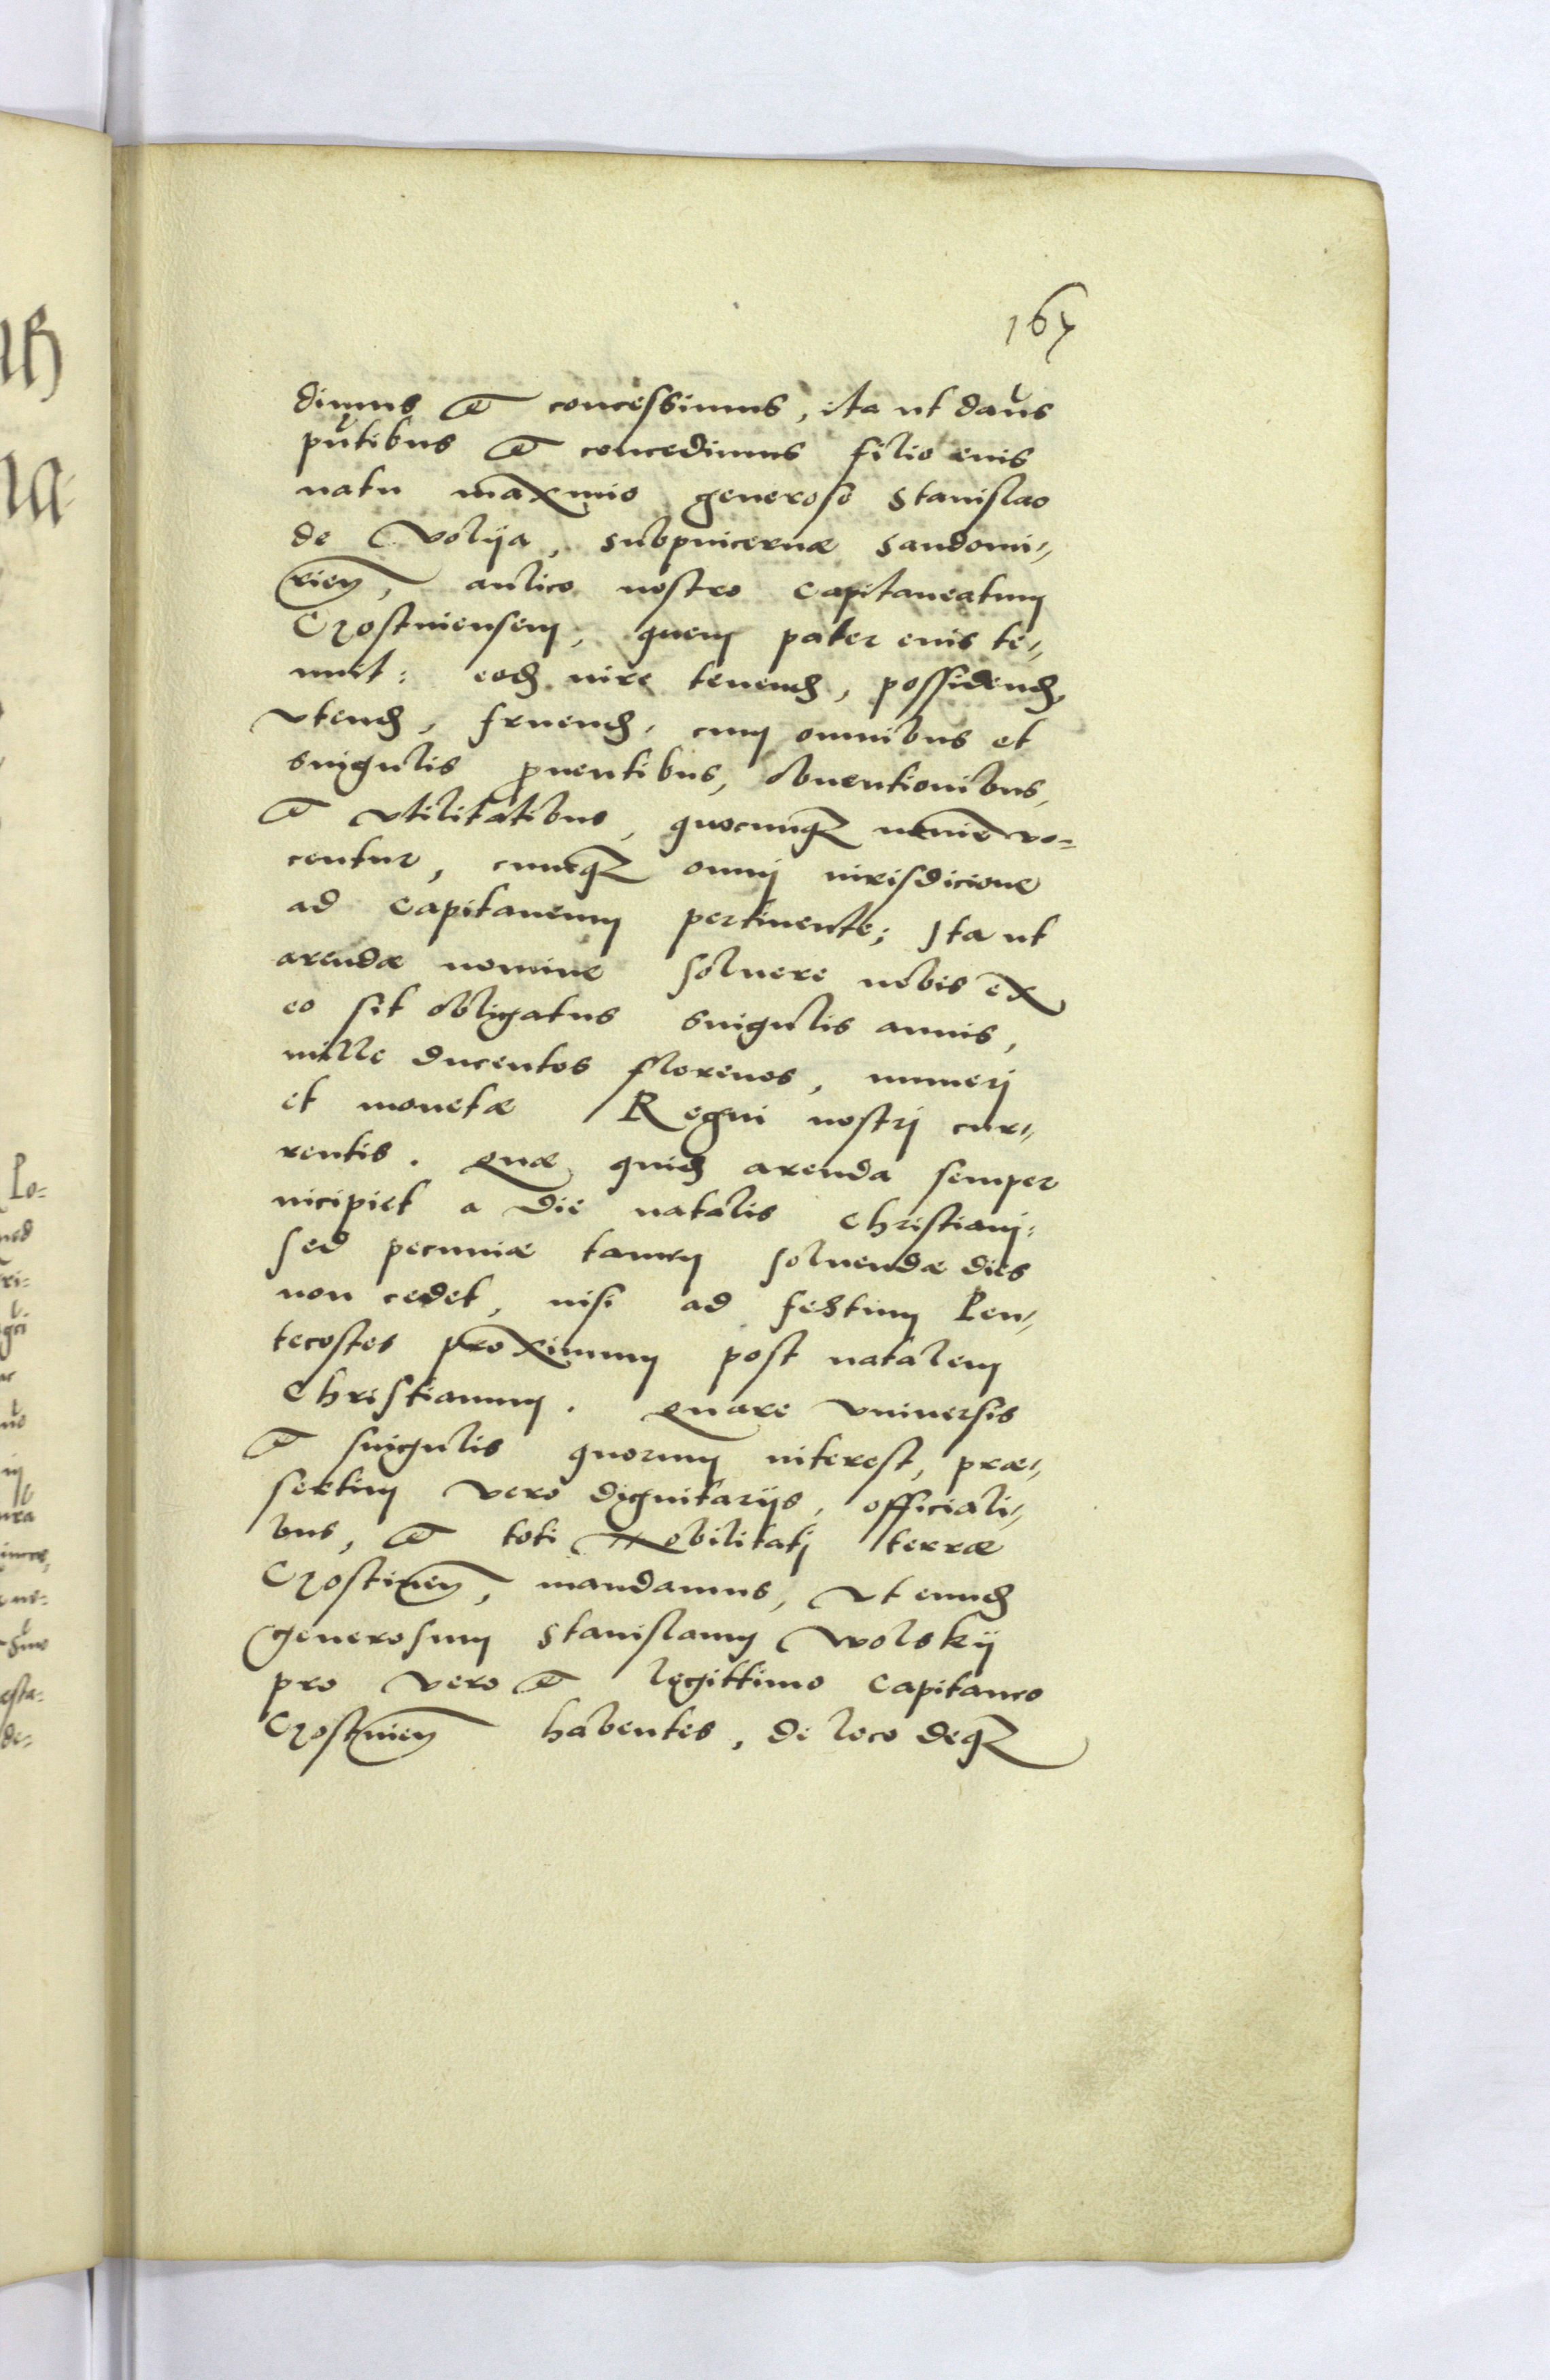 167
dimus et concessimus, ita ut damus
pñtibus et concedimus filio eius
natu maximo generoso Stanislao
de Wolija, subpincernæ Sandomi,,
rieñ, aulico nostro Capitaneatum
Crosnensem, quem pater eius te,,
nuit: eodẽ iure tenendẽ, possidendẽ,
utendẽ, fruendẽ, cum omnibus et
singulis proventibus, obventionibus,
et utilitatibus, quocunq nomine vo=
centur, cumq omni iurisdicione
ad Capitaneum pertinente; Ita ut
arendæ nomine solvere nobis ex
eo sit obligatus singulis annis,
mille ducentos florenos, numeri
et monetæ Regni nostri cur,,
rentis. Quæ quidẽ arenda semper
incipiet a die natalis Christiani:
sed pecuniæ tamen solvendæ dies
non cedet, nisi ad festum Pen,,
tecostes proximum post natalem
Christianum. Quare universis
et singulis quorum interest, præ,,
sertim vero dignitarijs, officiali,,
bus, et toti Nobilitati terræ
mandamus, ut eundẽ
generosum Stanislaum Wolskij
pro vero et legittimo Capitaneo
habentes, de loco deq
Lo=